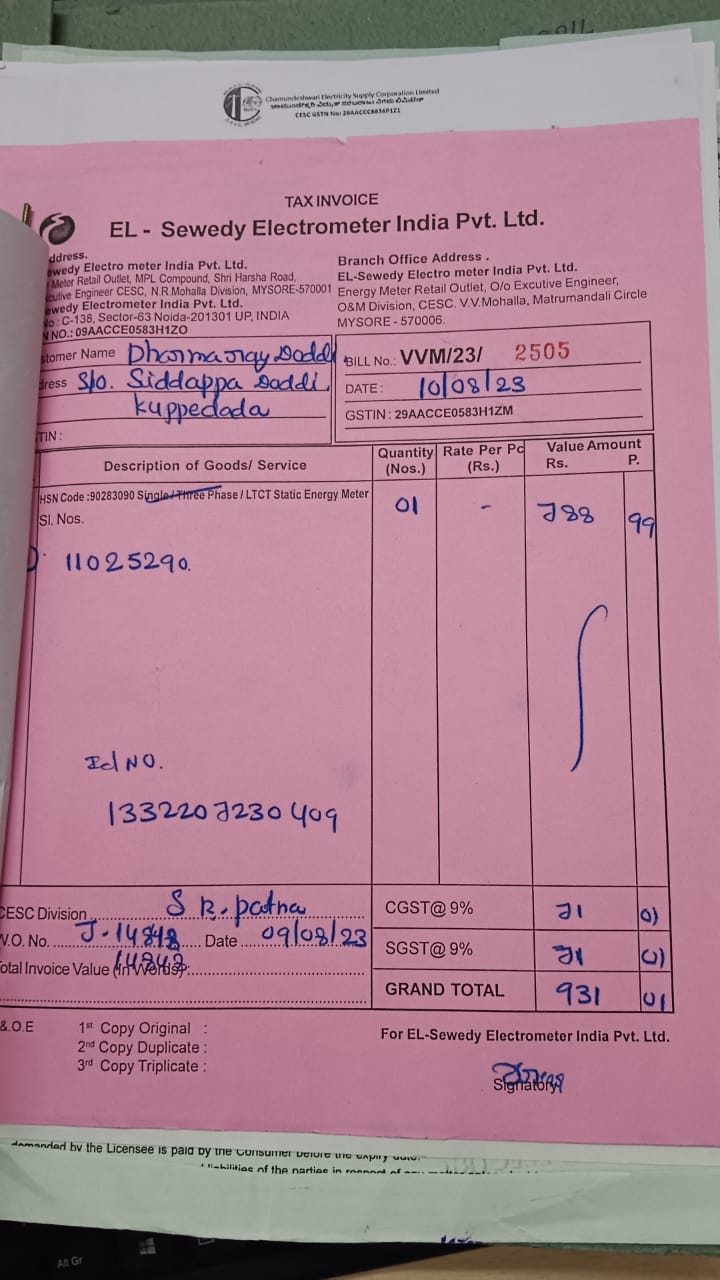 Chamundeshwari Electricity Supply Corporation Limited
ಚಾಮುಂಡೇಶ್ವರಿ ವಿದ್ಯುತ್ ಸರಬರಾಜು ನಿಗಮ ಲಿಮಿಟೆಡ್
CESC GSTN No:
TAX INVOICE
EL - Sewedy Electrometer India Pvt. Ltd.
ddress.
ewedy Electro meter India Pvt. Ltd.
Meter Retail Outlet, MPL Compound, Shri Harsha Road,
cutive Engineer CESC, N.R Mohalla Division, MYSORE-570001
ewedy Electrometer India Pvt. Ltd.
No : C-138, Sector-63 Noida-201301 UP, INDIA
NO.: 09AACCE0583H1ZO
Branch Office Address .
EL-Sewedy Electro meter India Pvt. Ltd.
Energy Meter Retail Outlet, O/o Excutive Engineer,
O&M Division, CESC. V.V.Mohalla, Matrumandali Circle
MYSORE - 570006.
stomer Name Dharmaray Doddi
ress S/o. Siddappa Doddi,
kuppedada
TIN :
BILL No.: VVM/23/ 2505
DATE : 10/08/23
GSTIN : 29AACCE0583H1ZM
Description of Goods/ Service
Quantity (Nos.)
Rate Per Pc (Rs.)
Value Amount
Rs. P.
HSN Code :90283090 Single / Three Phase / LTCT Static Energy Meter
Sl. Nos.
01 - 788 99
11025290.
Id NO.
1332207230409
CESC Division S R. patna
W.O. No. J-14848 Date 09/08/23
14848
otal Invoice Value (in Words):
CGST@ 9% 71 01
SGST@ 9% 71 01
GRAND TOTAL 931 01
&.O.E
1st Copy Original :
2nd Copy Duplicate :
3rd Copy Triplicate :
For EL-Sewedy Electrometer India Pvt. Ltd.
Signatory
demanded by the Licensee is paid by the Consumer before the expiry date.
liabilities of the parties in respect of any
Alt Gr